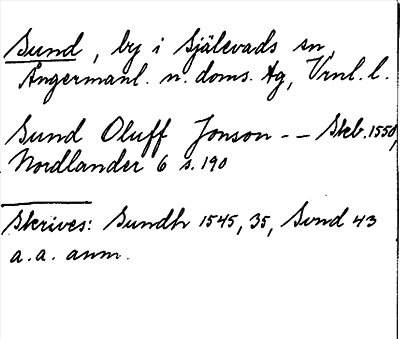 Sund, by i Själevads sn,
Ångermanl. n. doms. tg, Vrnl. l.
Sund Oluff Jonson -- Skb. 1550,
Nordlander 6 s. 190
Skrives: Sundh 1545, 35, Sund 43
a. a. anm.